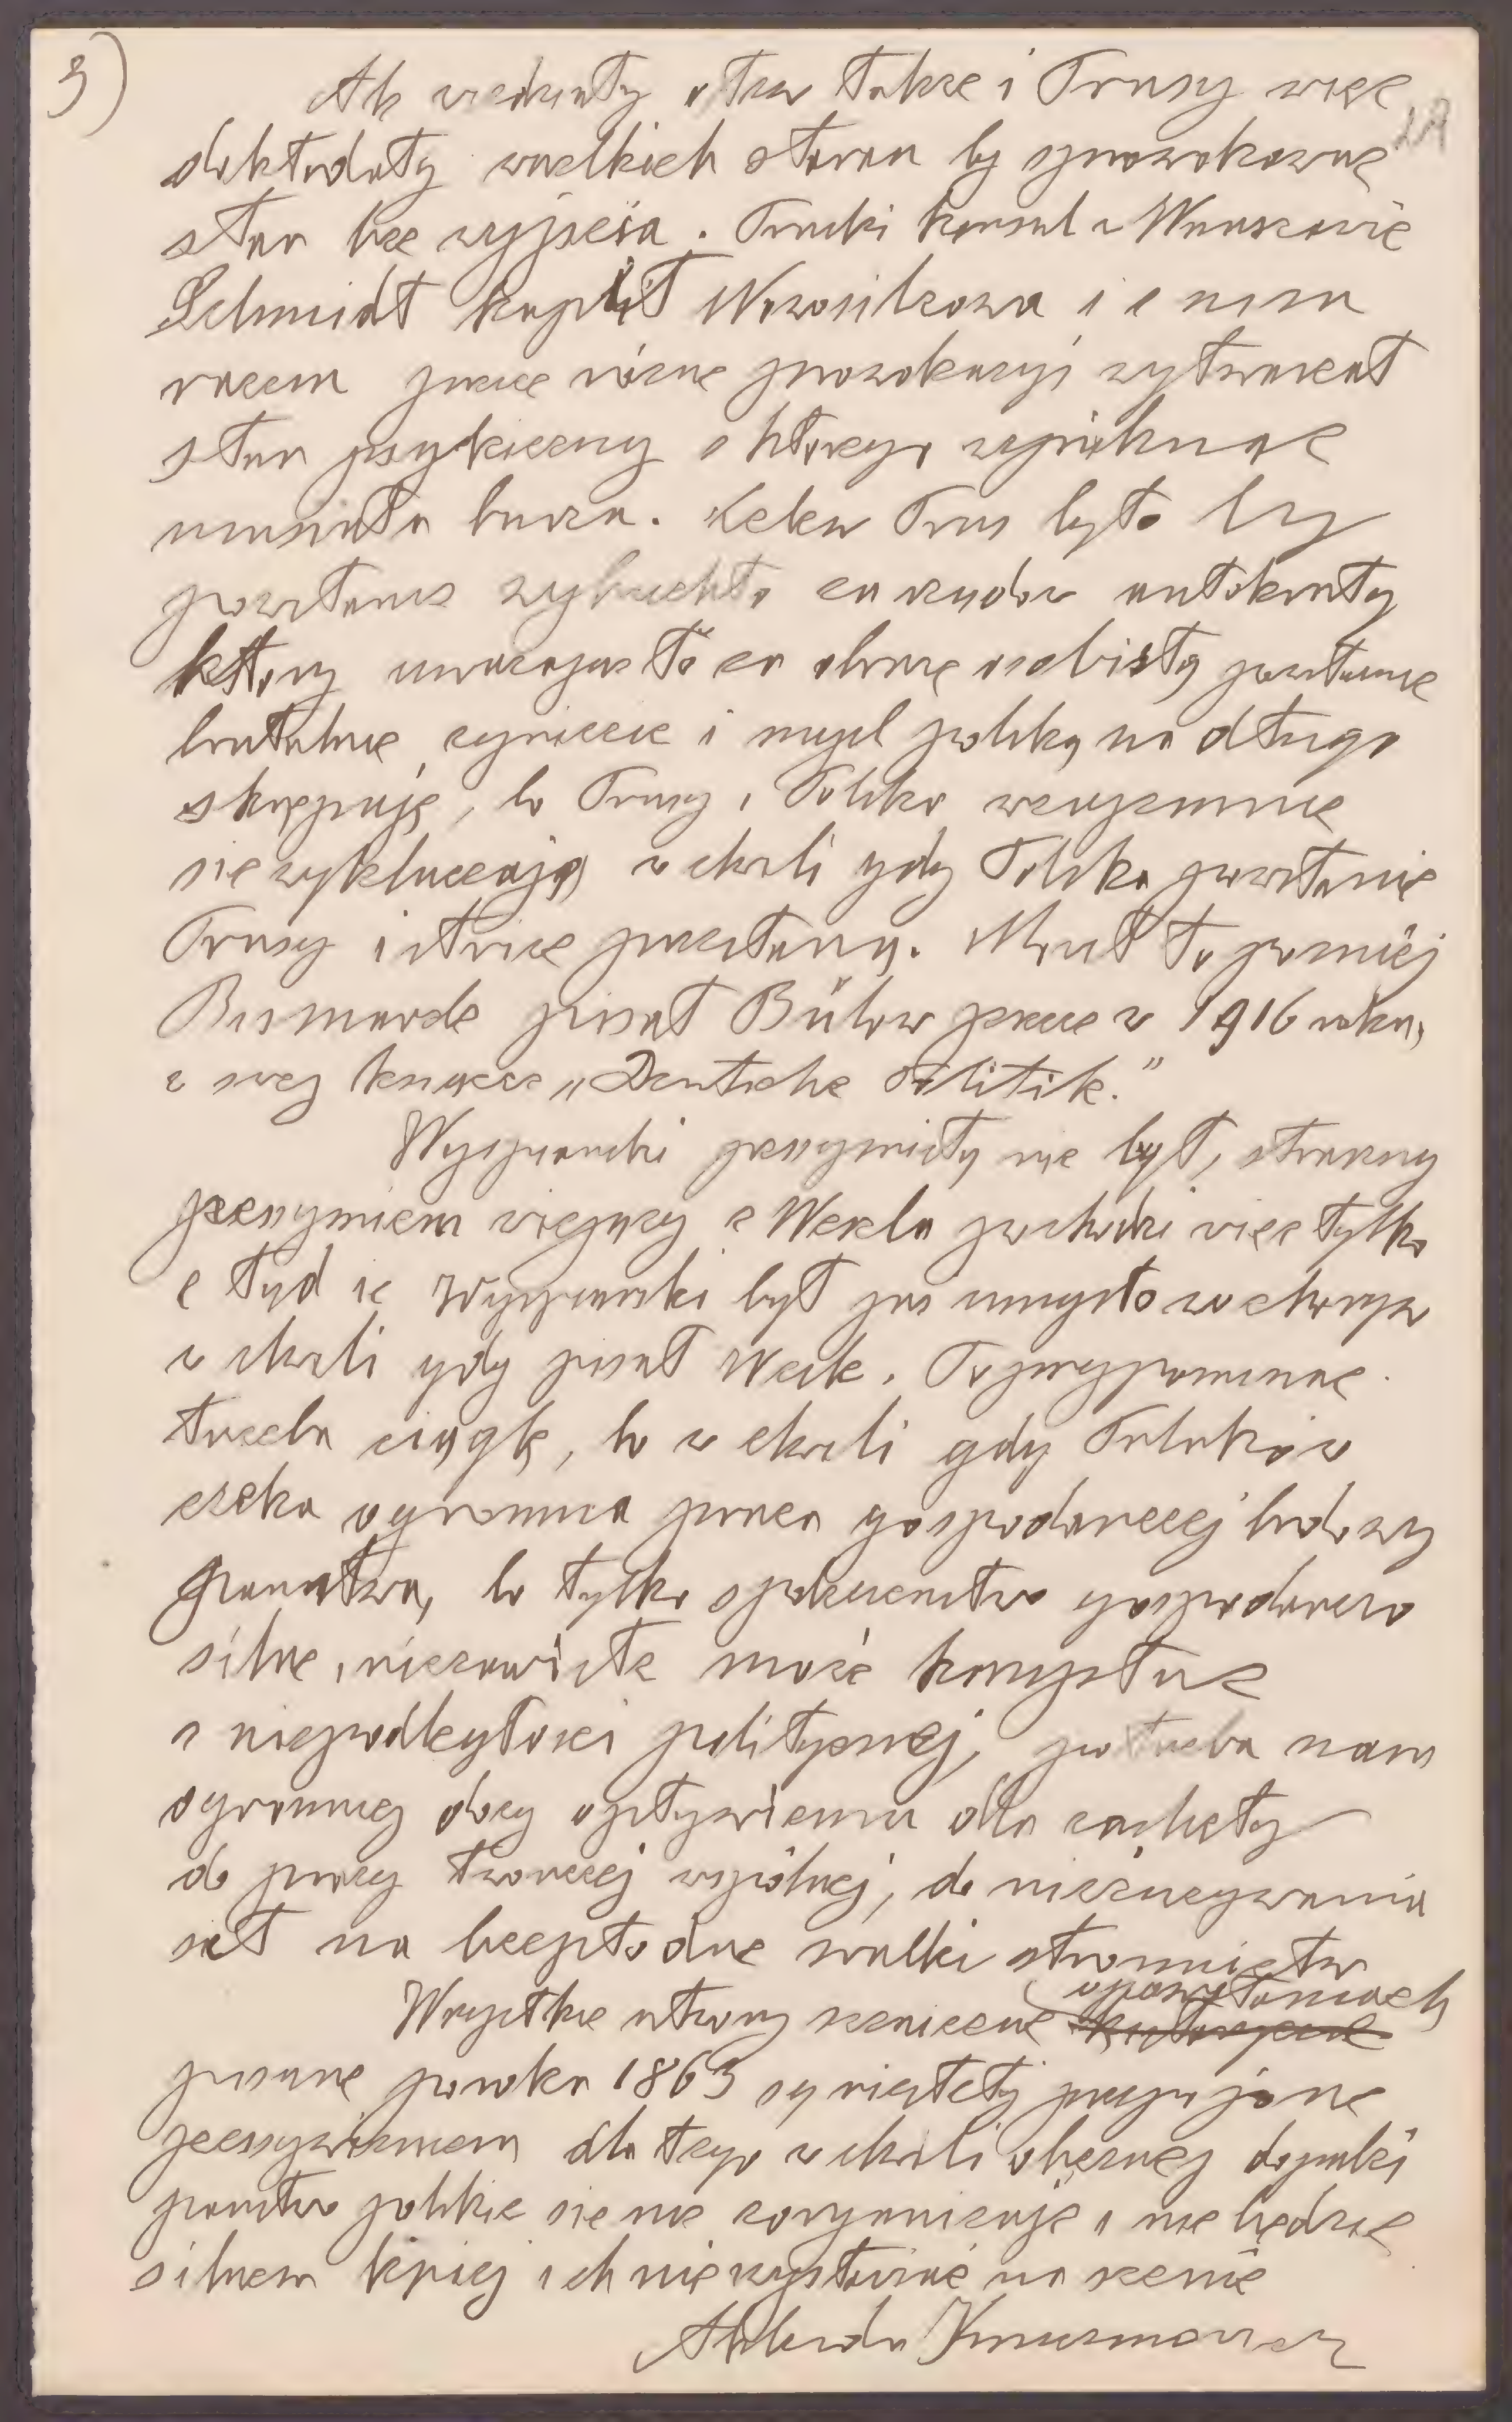 3)
Ale wiedziały o tem także i Prusy więc
dokładały wszelkich starań by sprowokować
stan bez wyjścia. Pruski konsul w Warszawie
Schmidt kupił Nowosilcowa i z nim
razem przez różne prowokacyje wytwarzał
stan psychiczny z którego wyniknąć
musiała burza. Celem Prus było by
powstanie wybuchło za rządów autokraty
który uważając to za obrazę osobistą powstanie
brutalnie zgniecie i myśl polską na długo
skrępuje, bo Prusy i Polska wzajemnie
się wykluczają w chwili gdy Polska powstanie
Prusy istnieć przestaną. Mówił to później
Bismarck pisał Bülow jeszcze w 1916 roku,
w swej książce „Deutsche Politik."
Wyspiański pesymistą nie był, straszny
pesymizm wiejący z Wesela pochodzi więc tylko
z tąd że Wyspiański był już umysłowo chorym
w chwili gdy pisał Wesele. To przypominać
trzeba ciągle, bo w chwili gdy Polaków
czeka ogromna praca gospodarczej budowy
państwa, bo tylko społeczeństwo gospodarczo
silne, niezawisłe może korzystać
z niepodległości politycznej, potrzeba nam
ogromnej dozy optymizmu dla zachęty
do pracy twórczej wspólnej, do niezużywania
sił na bezpłodne walki stronnictw
Wszystkie utwory sceniczne o powstaniach
pisane po roku 1863 są niestety przepojone
pesymizmem dla tego w chwili obecnej dopóki
państwo polskie się nie zorganizuje i nie będzie
silnem lepiej ich nie wystawiać na scenie